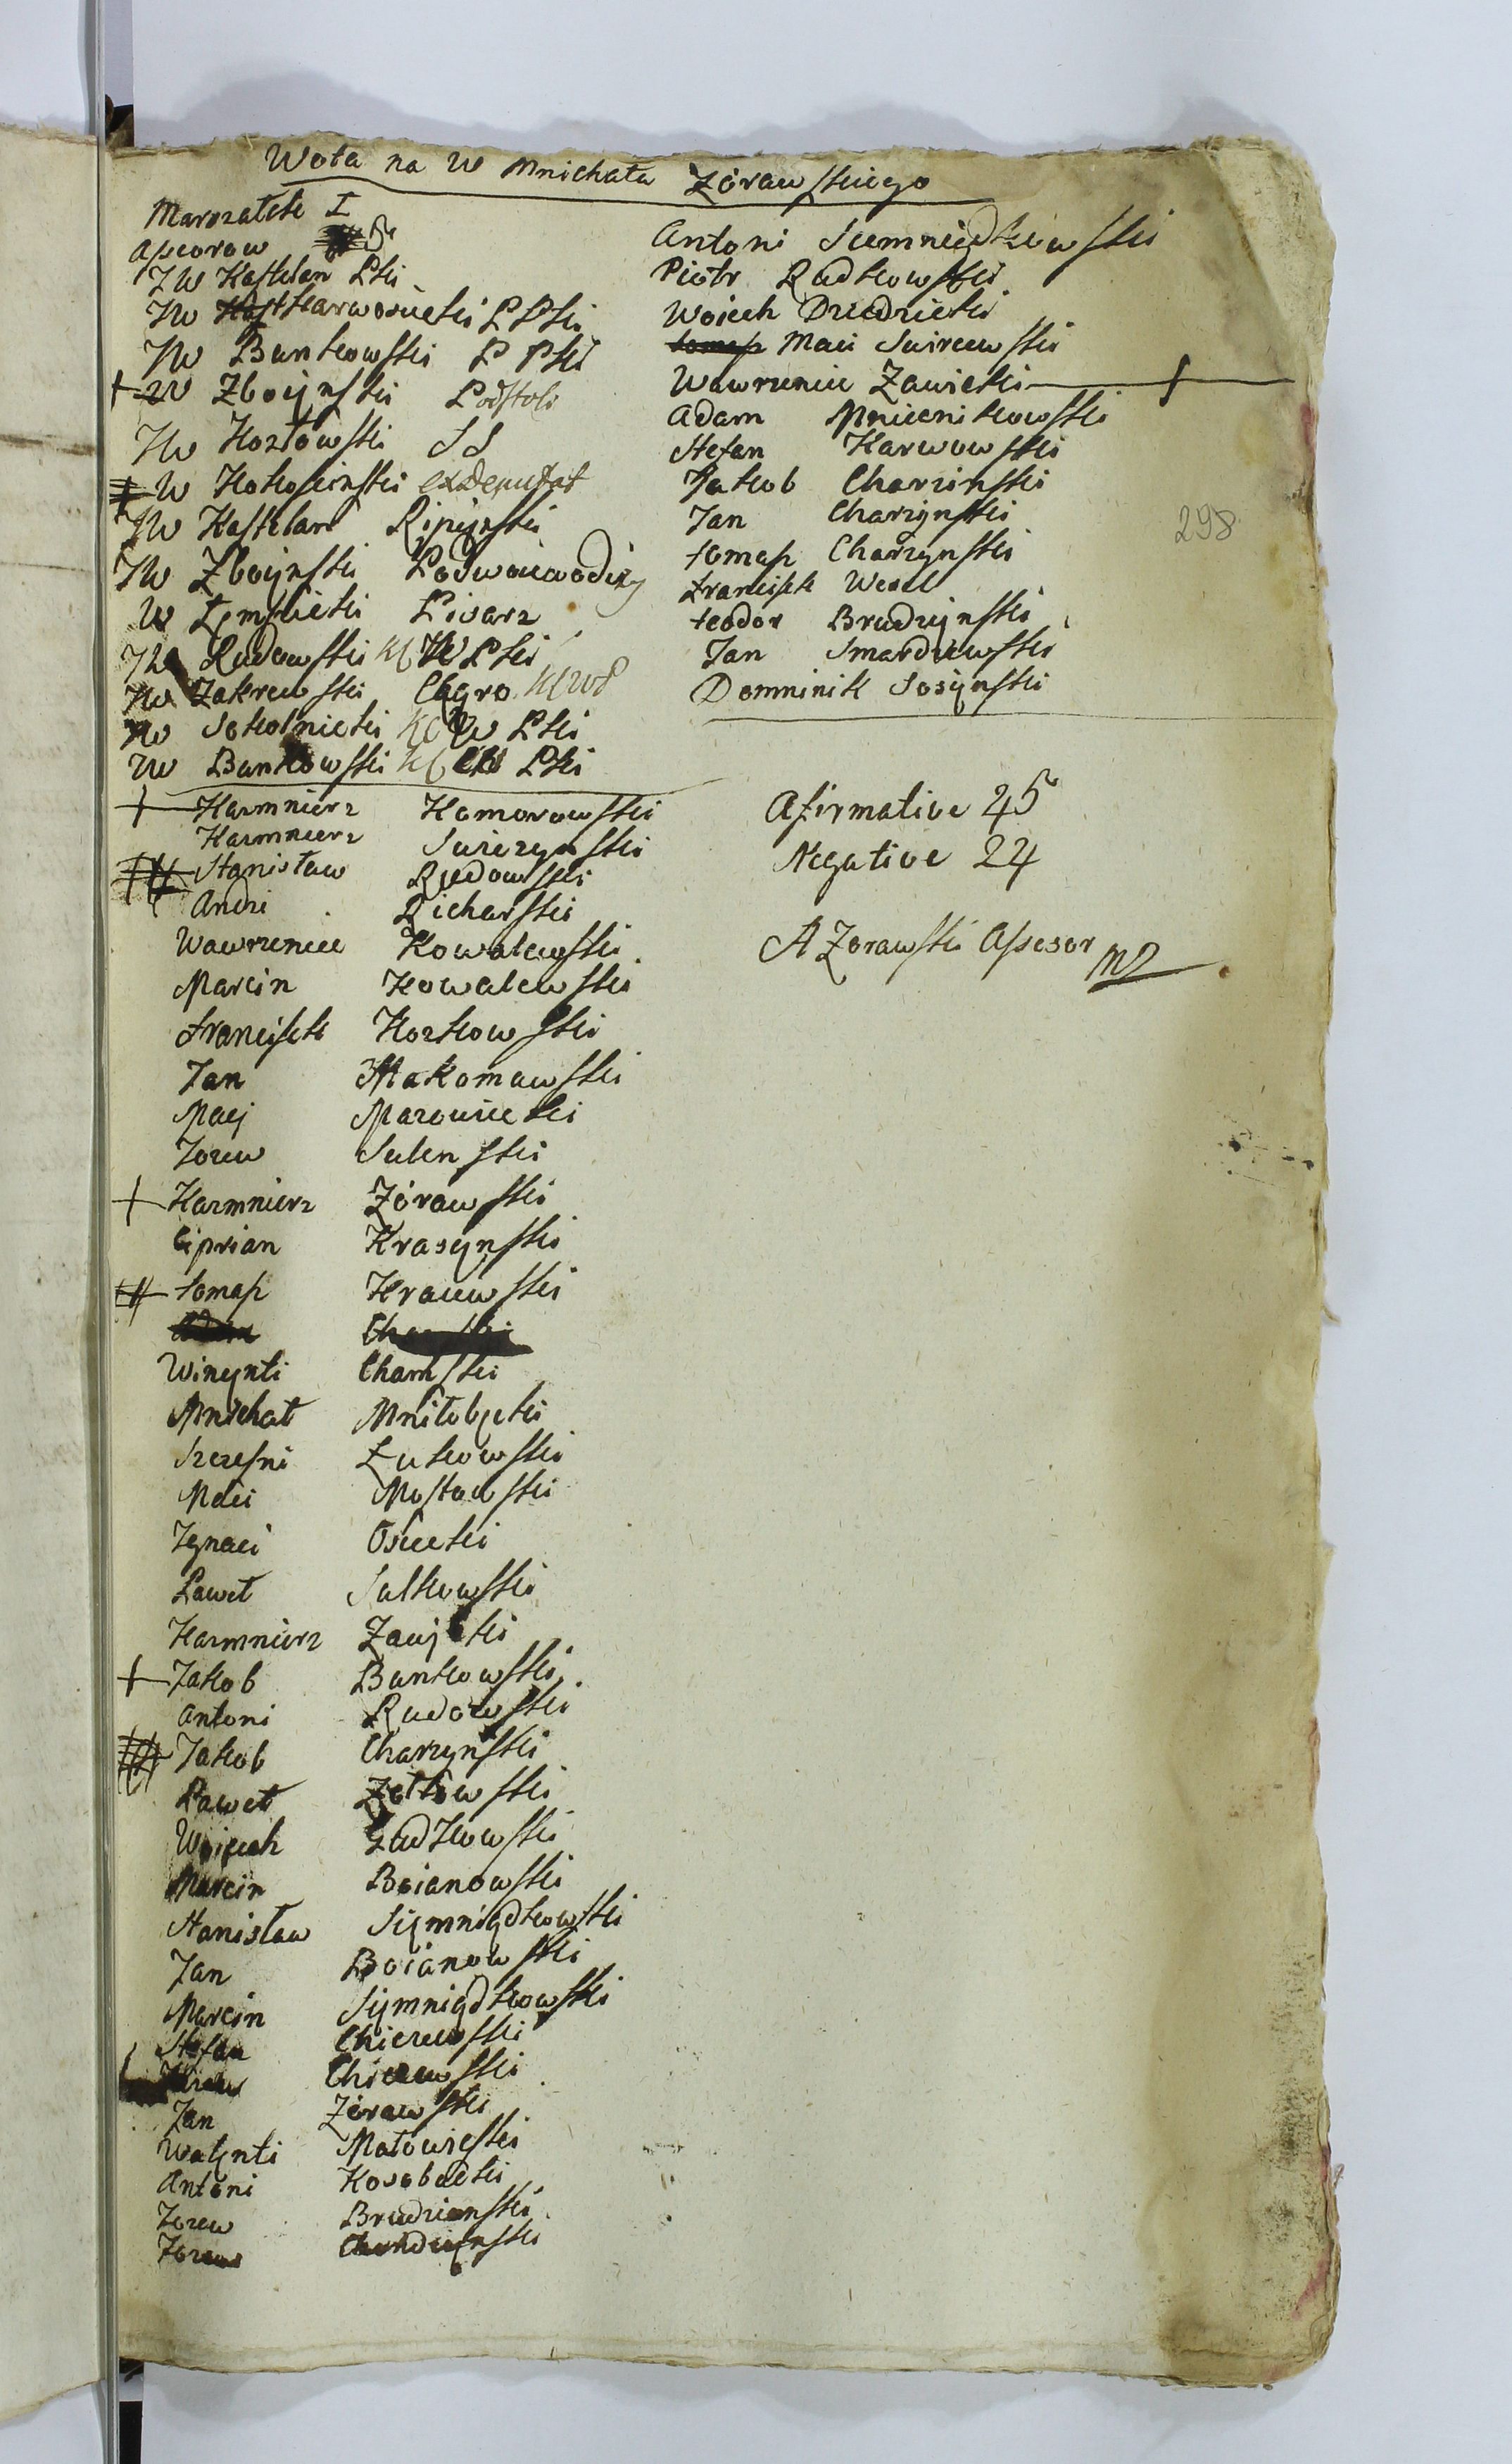 Wota na W Mnichała Zórawskiego
Marszałek I
Assesorow 5
JW Kasztelan Płki
JW Karwosiecki P Płki
JW Bunkowski P Płki
W Zboynski Podstoli
JW Kozłowski S S
W Kokosinski exdeputat
JW Kasztelan Ripinski
JW Zboynski Podwoiewodzy
W Lempicki Pisarz
JW Rudowski KC W Płki
JW Zakrewski Chgro KCWP
JW Sokolnicki KC W Płki
JW Bunkowski KC W Płki
Kazmnierz Komorowski
Kazmnierz Suirczynski
Stanisław Rudowski
Andri Richarski
Wawrzeniec Kowalewski
Marcin Kowalewski
Francisek Kozkowski
Jan Makomawski
Maej Mazowiecki
Jozew Sulenski
Kazmnierz Zórawski
Ciprian Krasynski
Tomasz Kraiewski
Wincynti Chamski
Mnichał Mniłobycki
Szczesni Łukowski
Maei Mostowski
Ignaci Osiecki
Paweł Sulkowski
Kazmnierz Zawjcki
Jakob Bunkowski
Antoni Rudowski
Jakob Charzynski
Paweł Zołtowski
Woiciech Gudkowski
Marcin Boianowski
Stanisław Siymniądkowski
Jan Boianowski
Marcin Siymniądkowski
Stefan Chiczewski
Chiczewski
Jan Zórawski
Walynti Małowieski
Antoni Kosobucki
Jozew Brudzienski
Jozew Chondzynski
Antoni Siemniedkowski
Piotr Rudkowski
Woiceh Dziedzicki
Maci Suirczewski
Wawrzeniec Zawicki
Adam Mniecznikowski
Stefan Karwowski
Jakob Charzinski
Jan Charzynski
Tomasz Charzynski
Francisek Wesel
Teodor Brudzynski
Jan Smardzewski
Domninik Sosynski
Afirmative 45
Negative 24
A Zorawski Assesor mp
298